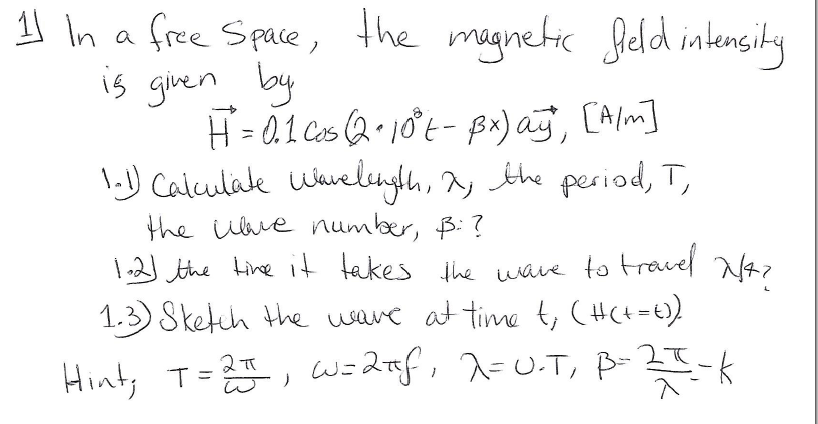 1) In a free Space, the magnetic field intensity
is given by
H⃗ = 0.1 Cos (2•10⁸t - βx) ay⃗, [A/m]
1.1) Calculate wavelength, λ, the period, T,
the wave number, β:?
1.2) the time it takes the wave to travel λ/4?
1.3) Sketch the wave at time t, (H(t=t))
Hint; T = 2π/ω, ω=2πf, λ=U.T, β=2π/λ=k